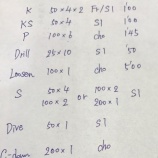 K 50×4×2 Fr/S1 1'00
KS 50×4 S1 1'00
P 100×6 cho 1'45
Drill 25×10 S1 50
Loosen 100×1 cho 5'00
S 50×4 or 100×2 S1
100×2 200×1
Dive 50×1 S1
C-down 200×1 cho